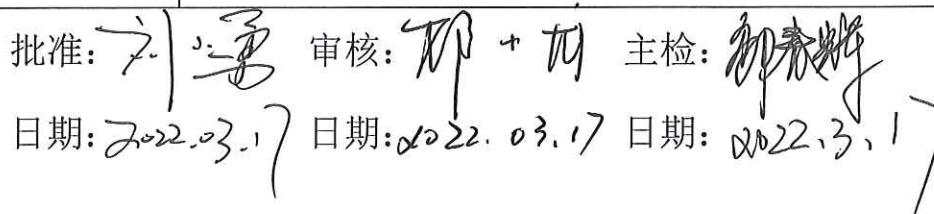 批准: 审核: 主检:
日期:2022.03.17 日期:2022.03.17 日期:2022.3.17